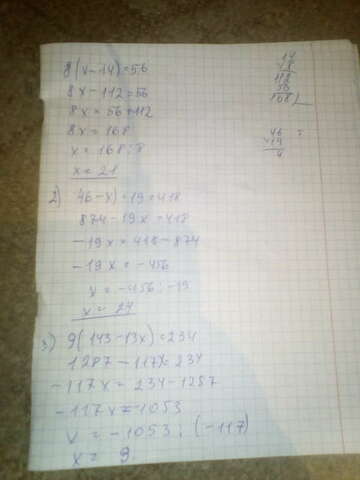 8(x-14)=56
8x-112=56
8x=56+112
8x=168
x=168:8
x=21
2) (46-x)·19=418
874-19x=418
-19x=418-874
-19x=-456
x=-456:-19
x=24
3) 9(143-13x)=234
1287-117x=234
-117x=234-1287
-117x=-1053
x=-1053:(-117)
x=9
14
112
56
168
46
19
4